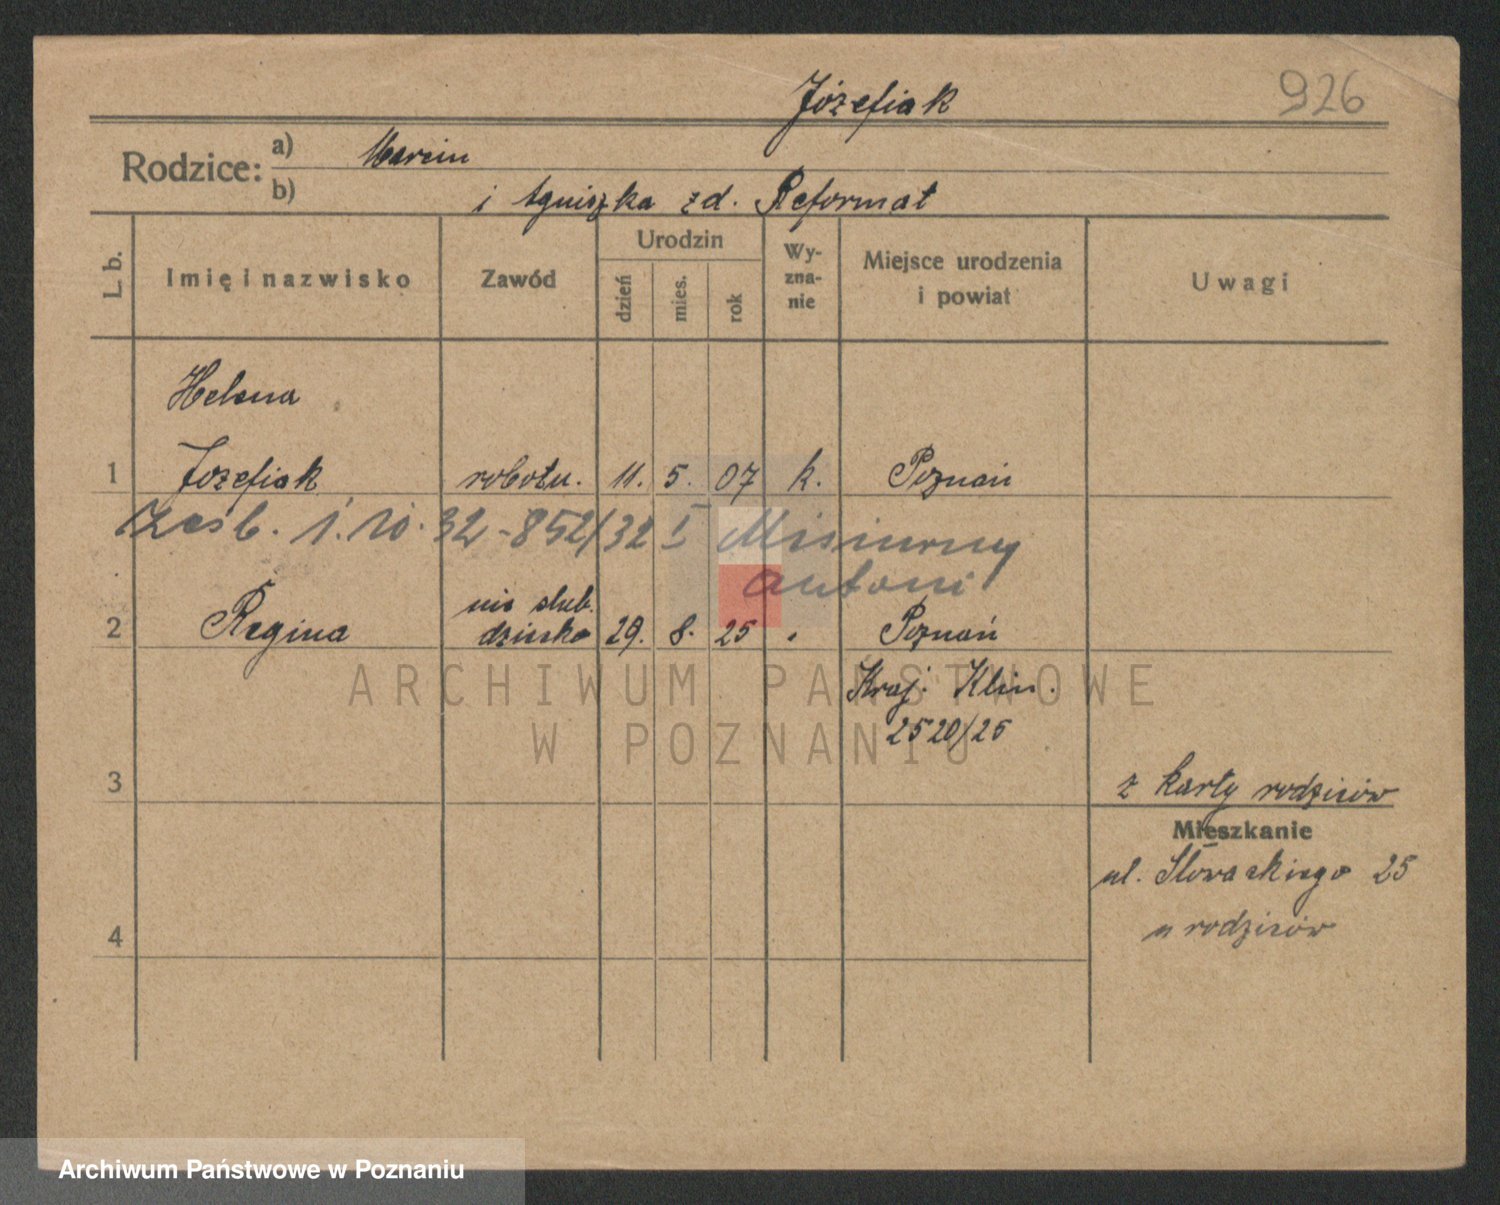 Józefiak 926
Rodzice: a) Marcin
b) i Agnieszka zd. Reformat
L. b.
Imię i nazwisko
Zawód
Urodzin
dzień
mies.
rok
Wy-
zna-
nie
Miejsce urodzenia
i powiat
Uwagi
Helena
1 Józefiak robotn. 11. 5. 07 k. Poznań
zaśb. 1.10.32-852/32 I Misiurny
Antoni
nie ślub.
2 Regina dziecko 29. 8. 25 Poznań
Kraj. Klin.
2520/25
3
z karty rodziców
Mieszkanie
ul. Słowackiego 25
u rodziców
4
ARCHIWUM PAŃSTWOWE
W POZNANIU
Archiwum Państwowe w Poznaniu